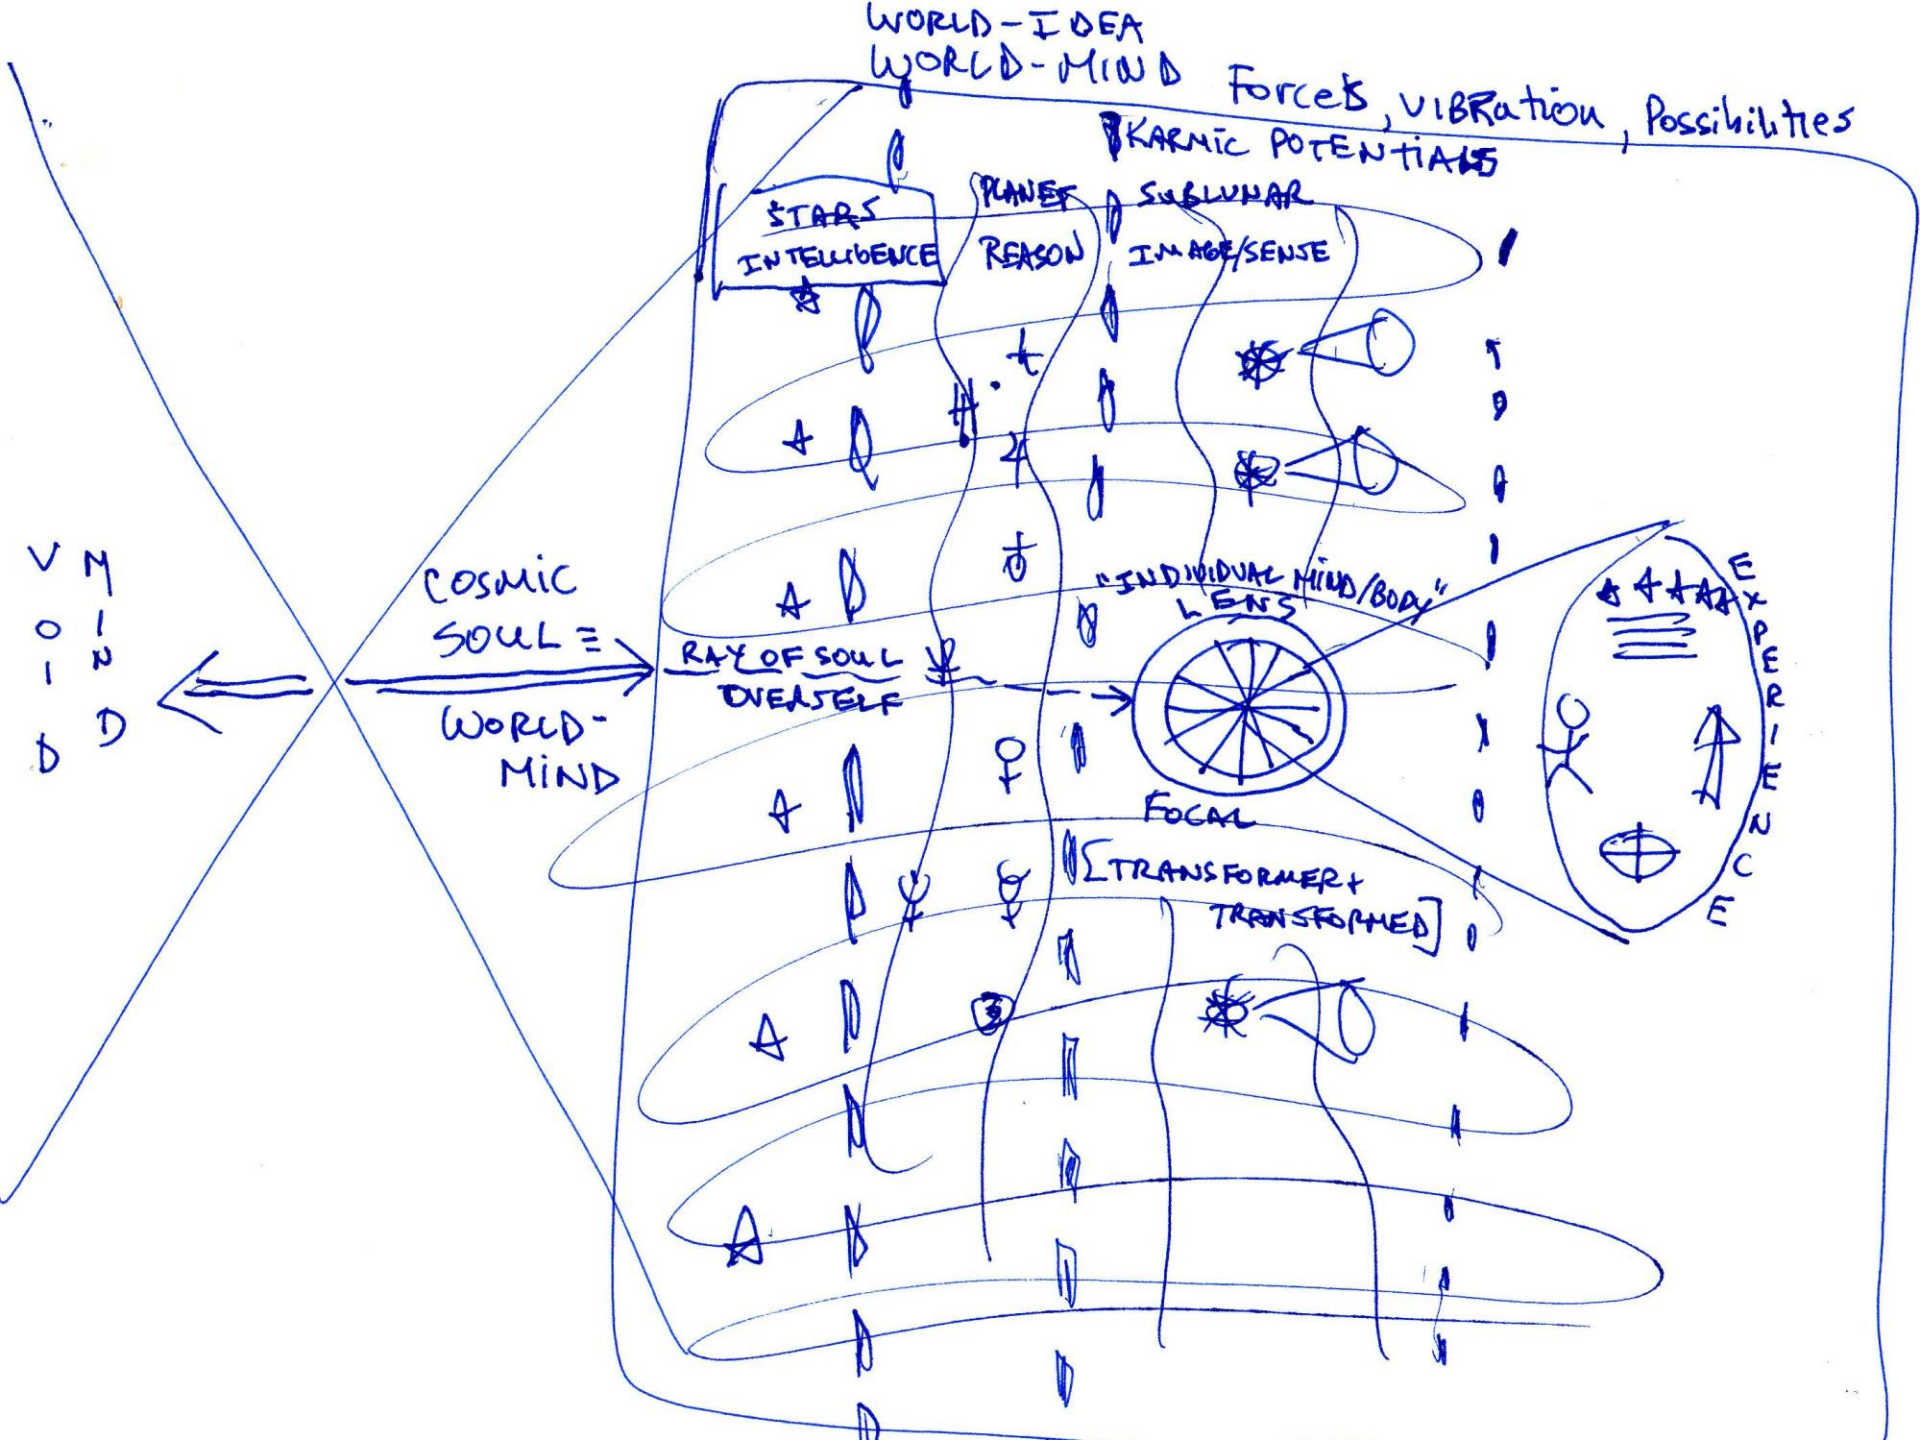 WORLD-IDEA
WORLD-MIND
Forces, VIBRation, Possibilities
KARMIC POTENTIALS
STARS
INTELLIGENCE
PLANET
REASON
SUBLUNAR
IMAGE/SENSE
VOID
MIND
COSMIC
SOUL ≡
WORLD-
MIND
RAY OF SOUL
OVERSELF
"INDIVIDUAL MIND/BODY"
LENS
FOCAL
[TRANSFORMER+
TRANSFORMED]
EXPERIENCE